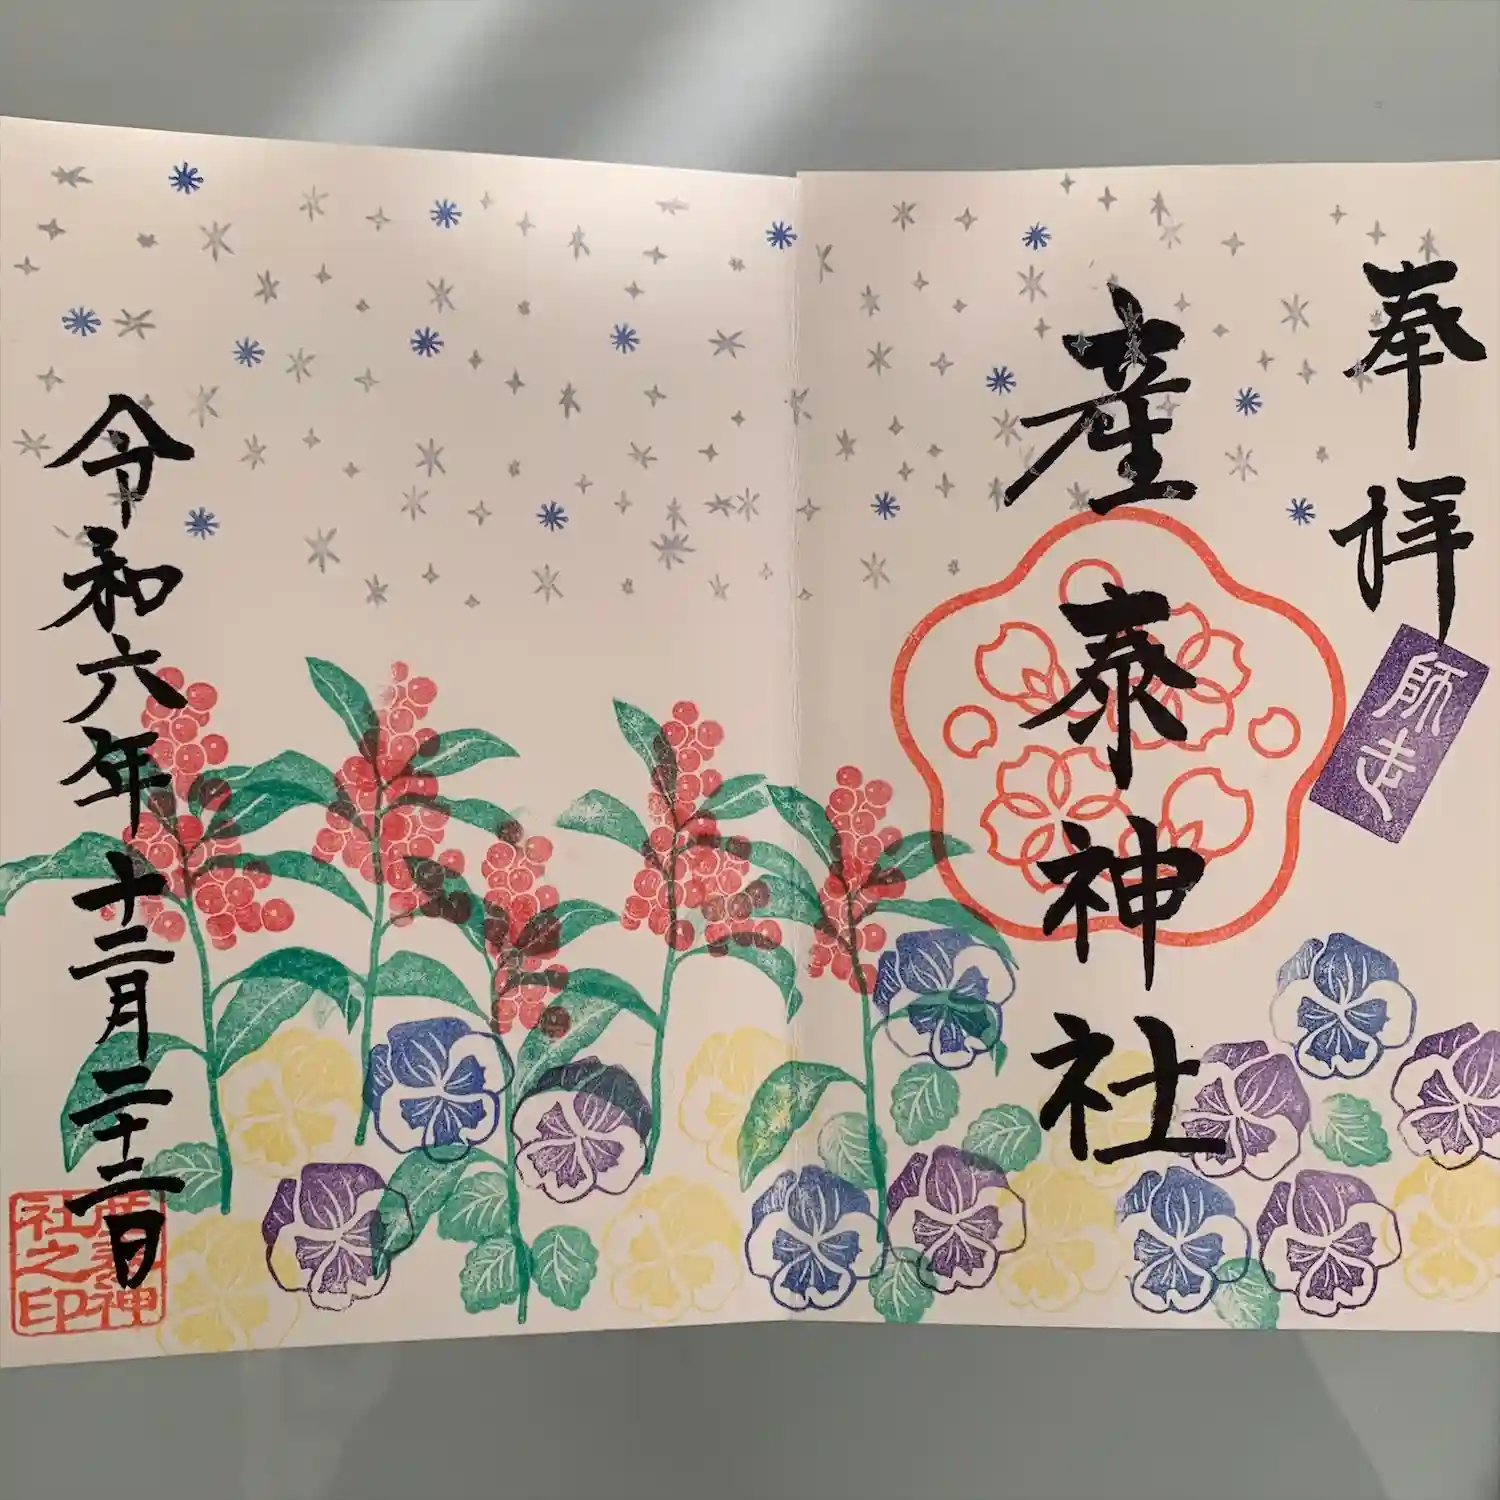 奉拝
師走
産泰神社
令和六年十二月二十二日
産泰神
社之印